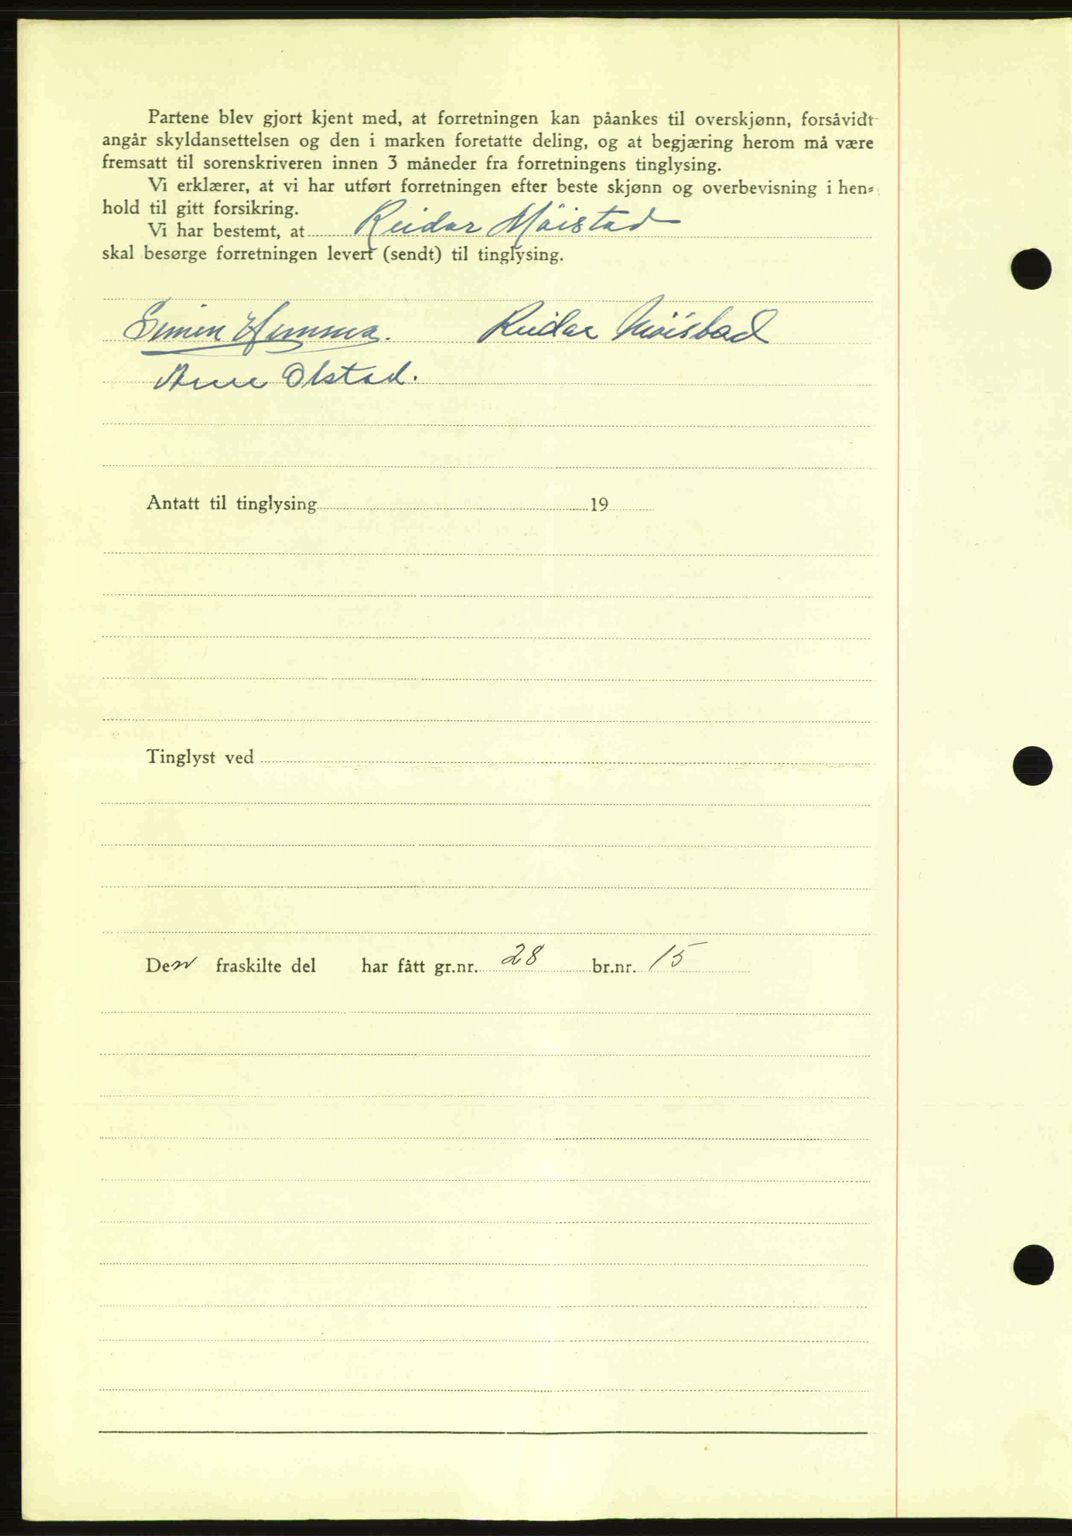 Partene blev gjort kjent med, at forretningen kan påankes til overskjønn, forsåvidt
angår skyldansettelsen og den i marken foretatte deling, og at begjæring herom må være
fremsatt til sorenskriveren innen 3 måneder fra forretningens tinglysing.
Vi erklærer, at vi har utført forretningen efter beste skjønn og overbevisning i hen=
hold til gitt forsikring.
Vi har bestemt, at Reidar Möistad
skal besørge forretningen levert (sendt) til tinglysing.
Simen Reidar Möistad
Arne Olstad.
Antatt til tinglysing 19
Tinglyst ved
Den fraskilte del har fått gr.nr. 28 br.nr. 15